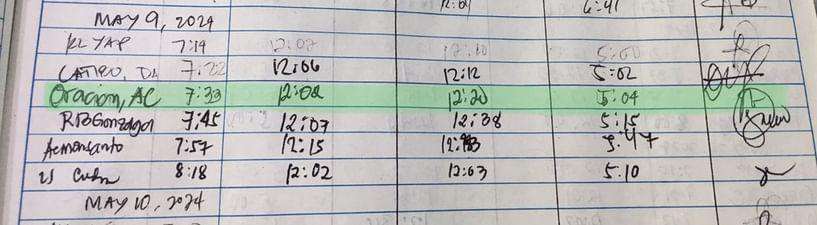 12:01 5:41
MAY 9, 2024
KL YAP 7:19 12:07 12:10 5:00
7:22 12:06 12:12 5:02
Oracion, AC 7:33 12:02 12:20 5:04
RBGonzaga 7:45 12:07 12:38 5:15
Acmonsanto 7:57 12:15 5:47
8:18 12:02 12:03 5:10
MAY 10, 2024